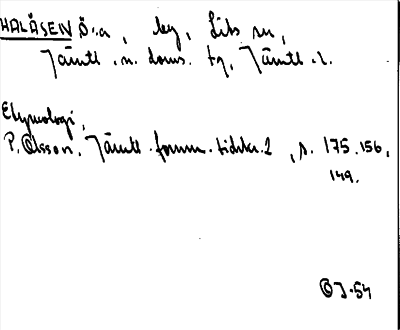 HALÅSEN Ö:a, by, Lits sn,
Jämtl. n. doms. tg, Jämtl. l.
Etymologi,
P. Olsson, Jämtl. fornm. tidskr. 2, s. 175, 156,
149.
OJ-54